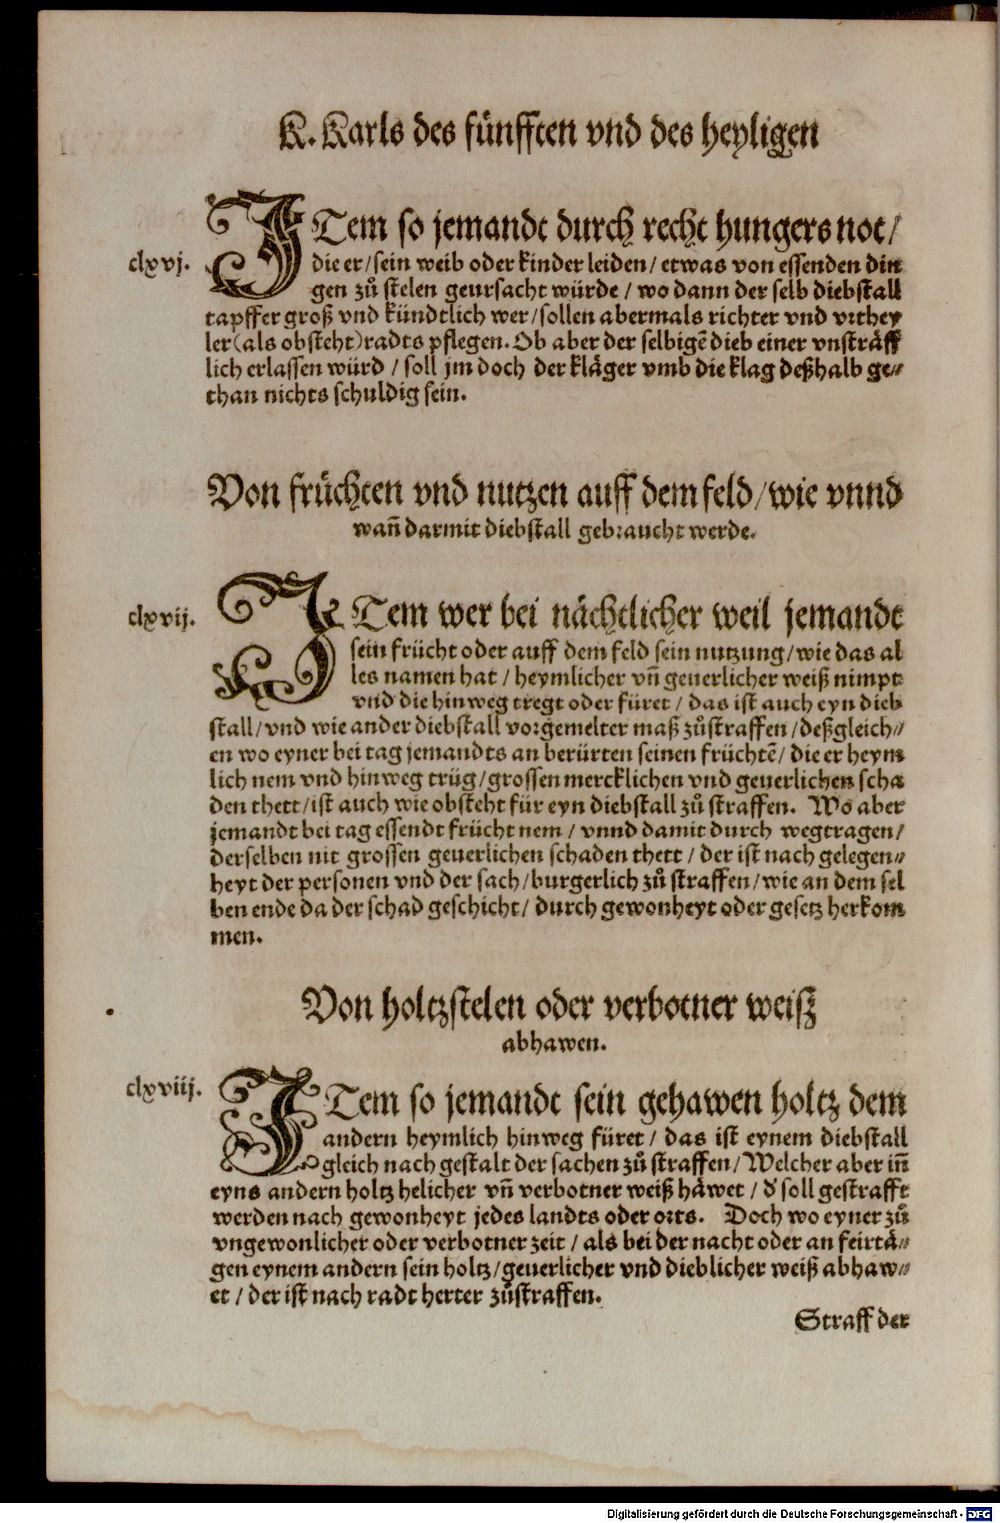 K. Karls des fünfften vnd des heyligen
clxvj.
ITem so jemandt durch recht hungers not /
die er / sein weib oder kinder leiden / etwas von essenden din
gen zů stelen geursacht würde / wo dann der selb diebstall
tapffer groß vnd kündtlich wer / sollen abermals richter vnd vrthey
ler (als obsteht) radts pflegen. Ob aber der selbigē dieb einer vnsträff
lich erlassen würd / soll jm doch der kläger vmb die klag deßhalb ge⸗
than nichts schuldig sein.
Von früchten vnd nutzen auff dem feld / wie vnnd
wañ darmit diebstall gebraucht werde.
clxvij.
ITem wer bei nächtlicher weil jemandt
sein frücht oder auff dem feld sein nutzung / wie das al
les namen hat / heymlicher vñ geuerlicher weiß nimpt
vnd die hinweg tregt oder füret / das ist auch eyn dieb
stall / vnd wie ander diebstall vorgemelter maß zůstraffen / deßgleich⸗
en wo eyner bei tag jemandts an berürten seinen früchtē / die er heym
lich nem vnd hinweg trüg / grossen mercklichen vnd geuerlichen scha
den thett / ist auch wie obsteht für eyn diebstall zů straffen. Wo aber
jemandt bei tag essendt frücht nem / vnnd damit durch wegtragen /
derselben nit grossen geuerlichen schaden thett / der ist nach gelegen⸗
heyt der personen vnd der sach / burgerlich zů straffen / wie an dem sel
ben ende da der schad geschicht / durch gewonheyt oder gesetz herkom
men.
Von holtzstelen oder verbotner weiß
abhawen.
clxviij.
ITem so jemandt sein gehawen holtz dem
andern heymlich hinweg füret / das ist eynem diebstall
gleich nach gestalt der sachen zů straffen / Welcher aber iñ
eyns andern holtz helicher vñ verbotner weiß häwet / d' soll gestrafft
werden nach gewonheyt jedes landts oder orts. Doch wo eyner zů
vngewonlicher oder verbotner zeit / als bei der nacht oder an feirtä⸗
gen eynem andern sein holtz / geuerlicher vnd dieblicher weiß abhaw⸗
et / der ist nach radt herter zůstraffen.
Straff der
Digitalisierung gefördert durch die Deutsche Forschungsgemeinschaft - DFG